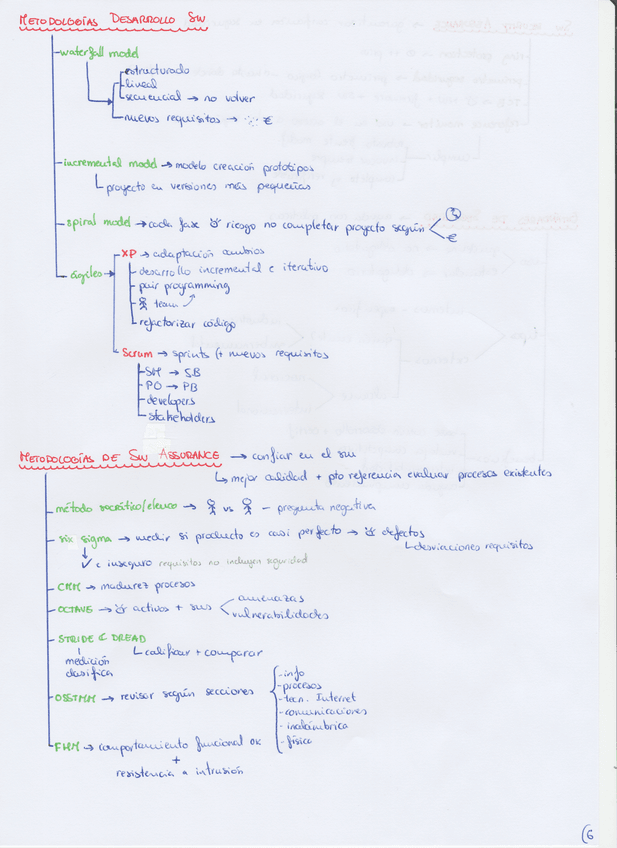 METODOLOGÍAS DESARROLLO SW
waterfall model
estructurado
lineal
secuencial → no volver
nuevos requisitos → €
incremental model → modelo creación prototipos
proyecto en versiones más pequeñas
spiral model → cada fase riesgo no completar proyecto según
€
ágiles
XP → adaptación cambios
desarrollo incremental e iterativo
pair programming
team
refactorizar código
Scrum → sprints (+ nuevos requisitos
SM → SB
PO → PB
developers
stakeholders
METODOLOGÍAS DE SW ASSURANCE → confiar en el sw
mejor calidad + pto referencia evaluar procesos existentes
método socrático/elenco → vs - pregunta negativa
six sigma → medir si producto es casi perfecto → defectos
desviaciones requisitos
✓ e inseguro requisitos no incluyen seguridad
CMM → madurez procesos
OCTAVE → activos + sus
amenazas
vulnerabilidades
STRIDE & DREAD
medición
clasifica
calificar + comparar
OSSTMM → revisar según secciones
- info
- procesos
- tecn. Internet
- comunicaciones
- inalámbrica
- física
FHM → comportamiento funcional OK
+
resistencia a intrusión
(6